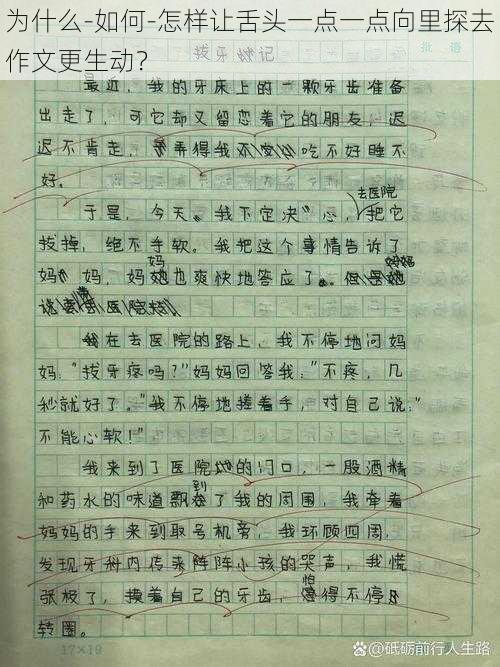 为什么-如何-怎样让舌头一点一点向里探去
作文更生动？
拔牙妙记
批 语
最近，我的牙床上的一颗牙齿准备
出走了，可它却又留恋着它的朋友，迟
迟不肯走，弄得我吃不好睡不
好。
于是，今天，我下定决心，去医院把它
拔掉，绝不手软。我把这个事情告诉了
妈妈，妈妈也爽快地答应了。
我在去医院的路上，我不停地问妈
妈："拔牙疼吗？"妈妈回答我："不疼，几
秒就好了。"我不停地搓着手，对自己说："
不能心软！"
我来到了医院的门口，一股酒精
和药水的味道飘到了我的周围，我牵着
妈妈的手来到取号机旁，我环顾四周，
发现牙科内传来阵阵小孩的哭声，我慌
张极了，摸着自己的牙齿，怕得不停
转圈。
17×19
@砥砺前行人生路